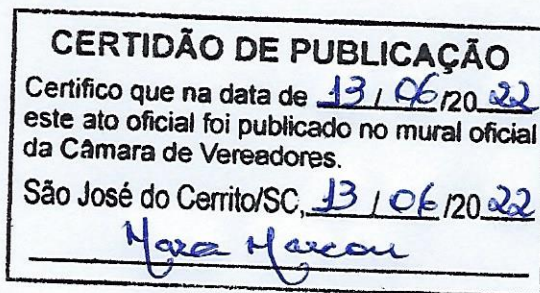 CERTIDÃO DE PUBLICAÇÃO
Certifico que na data de 13 / 06 /20 22
este ato oficial foi publicado no mural oficial
da Câmara de Vereadores.
São José do Cerrito/SC, 13 / 06 /20 22
Mara Marcon